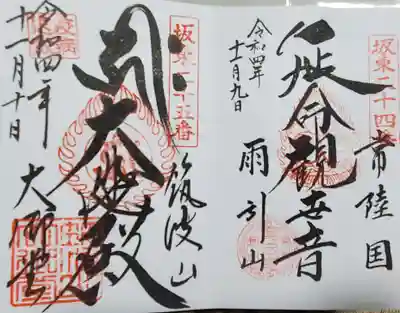 坂東二十四番
常陸国
延命観世音
雨引山
令和四年
十一月九日
坂東二十五番
筑波山
大悲殿
大御堂
令和四年
十一月十日